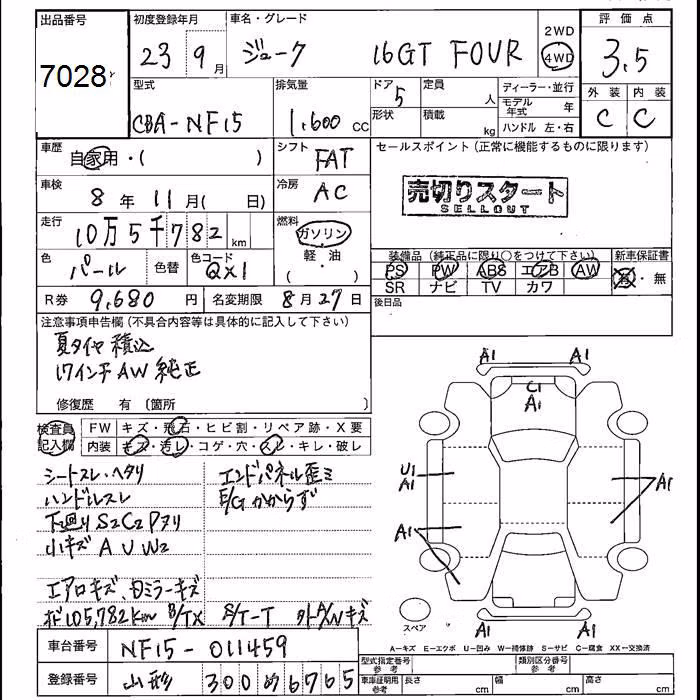 出品番号 初度登録年月 車名・グレード 評価点
7028 23 9月 ジューク 16GT FOUR 2WD 4WD 3.5
型式 排気量 ドア 定員 ディーラー・並行 外装 内装
CBA-NF15 1,600 CC 5 人 モデル年式 年 C C
形状 積載 kg ハンドル 左・右
車歴 自家用・( ) シフト FAT セールスポイント(正常に機能するものに限ります)
車検 8年 11月( 日) 冷房 AC 売切りスタート
SELLOUT
走行 10万5千782 km 燃料 ガソリン
軽・油
( ・ )
装備品(純正品に限り○をつけて下さい) 新車保証書
色 パール 色替 色コード QX1 PS PW ABS エアB AW 有・無
SR ナビ TV カワ
R券 9,680円 名変期限 8月27日 後日品
注意事項申告欄(不具合内容等は具体的に記入して下さい)
夏タイヤ積込
17インチAW純正
修復歴 有〔箇所 〕
検査員記入欄 FW キズ・飛石・ヒビ割・リペア跡・X要
内装 キズ・汚レ・コゲ・穴・スレ・キレ・破レ
シートスレ・ヘタリ エンドパネル歪ミ
ハンドルスレ E/Gかからず
下廻りS2C2Pヌリ
小キズ A U W2
エアロキズ、ミラーキズ
105,782km B/TX S/T-T
車台番号 NF15-011459
登録番号 山形 300 め6765
A1 A1
C1
A1
U1
A1
A1
A1
スペア
A1 A1
A-キズ E-エクボ U-凹み W-補修跡 S-サビ C-腐食 XX-交換済
型式指定番号 参考 類別区分番号 参考
車庫証明用 参考 長さ cm 幅 cm 高さ cm